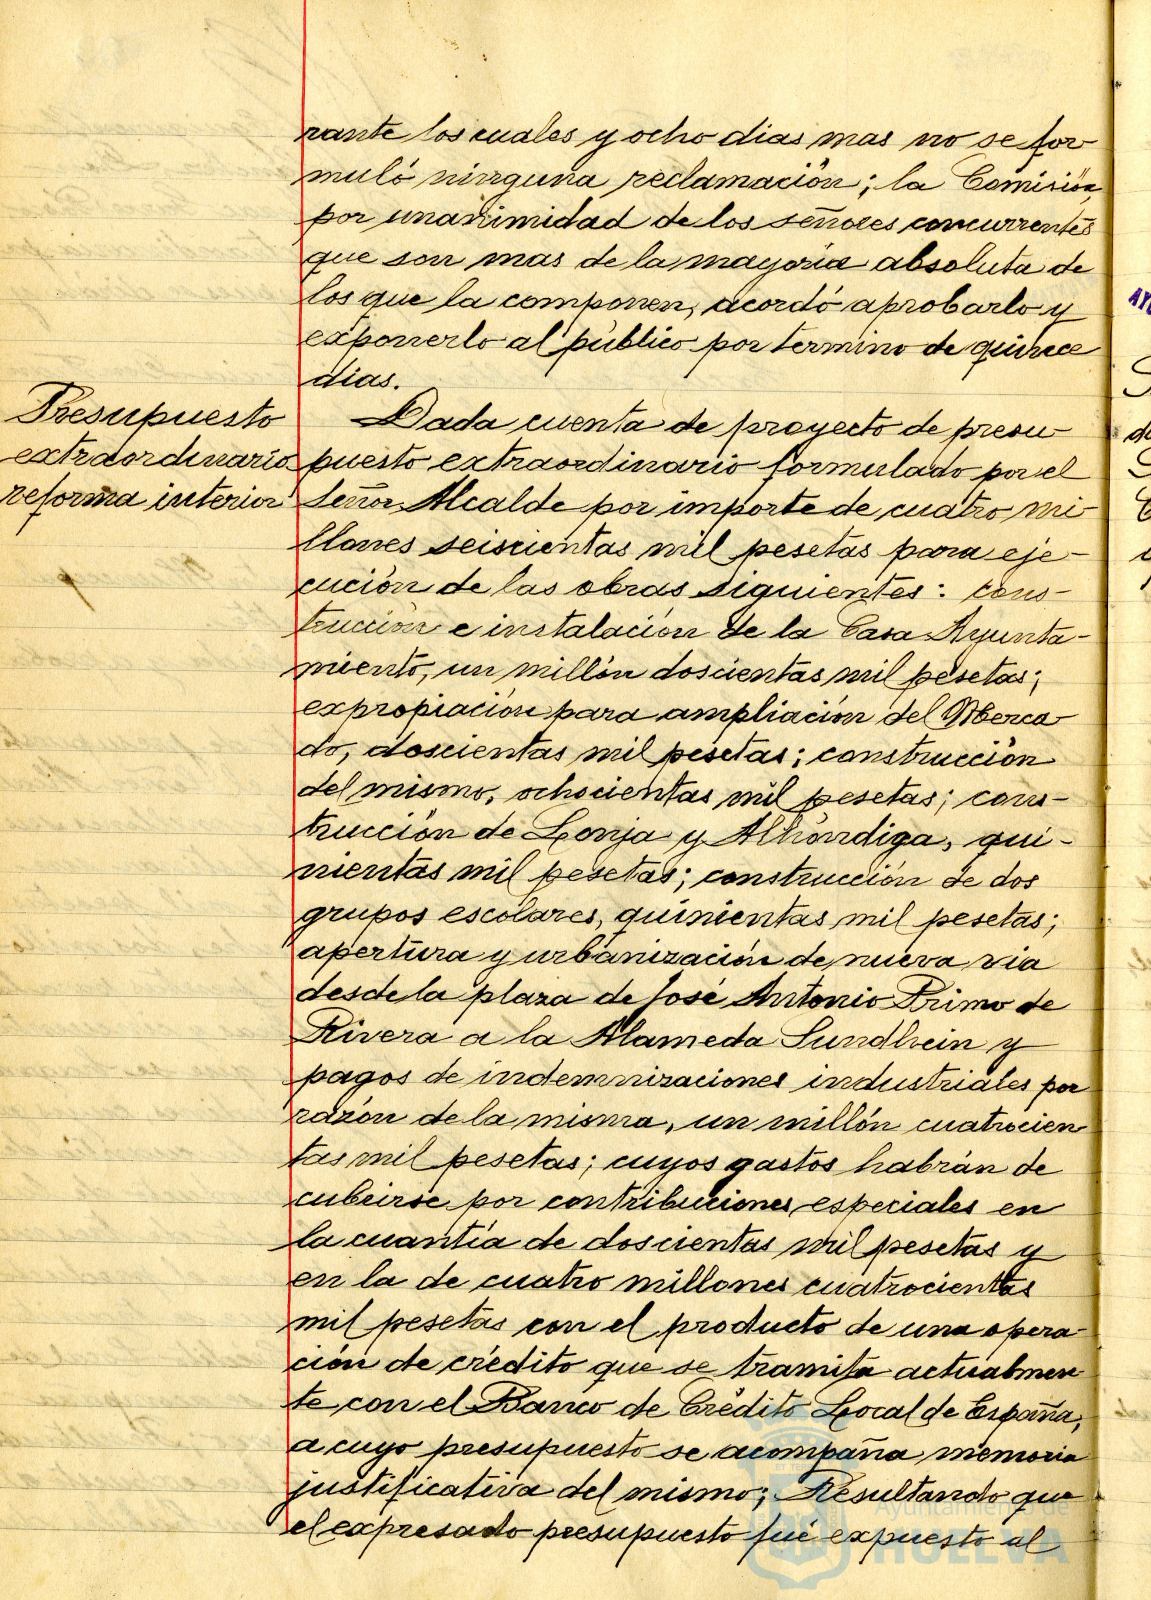 rante los cuales y ocho dias mas no se for
muló ninguna reclamación; la Comisión,
por unanimidad de los señores concurrentes
que son mas de la mayoria absoluta de
los que la componen, acordó aprobarlo y
exponerlo al público por termino de quince
dias.
Presupuesto
extraordinario
reforma interior
Dada cuenta de proyecto de presu
puesto extraordinario formulado por el
Señor Alcalde por importe de cuatro mi
llones seiscientas mil pesetas para eje-
cución de las obras siguientes: cons-
trucción e instalación de la Casa Ayunta-
miento, un millón doscientas mil pesetas;
expropiación para ampliación del Merca
do, doscientas mil pesetas; construcción
del mismo, ochocientas mil pesetas; cons-
trucción de Lonja y Alhóndiga, qui-
nientas mil pesetas; construcción de dos
grupos escolares, quinientas mil pesetas;
apertura y urbanización de nueva via
desde la plaza de José Antonio Primo de
Rivera a la Alameda Sundhein y
pagos de indemnizaciones industriales por
razón de la misma, un millón cuatrocien
tas mil pesetas; cuyos gastos habrán de
cubrirse por contribuciones especiales en
la cuantía de doscientas mil pesetas y
en la de cuatro millones cuatrocientas
mil pesetas con el producto de una opera
ción de crédito que se tramita actualmen
te con el Banco de Crédito Local de España,
a cuyo presupuesto se acompaña memoria
justificativa del mismo; Resultando que
el expresado presupuesto fué expuesto al
Ayuntamiento de
HUELVA